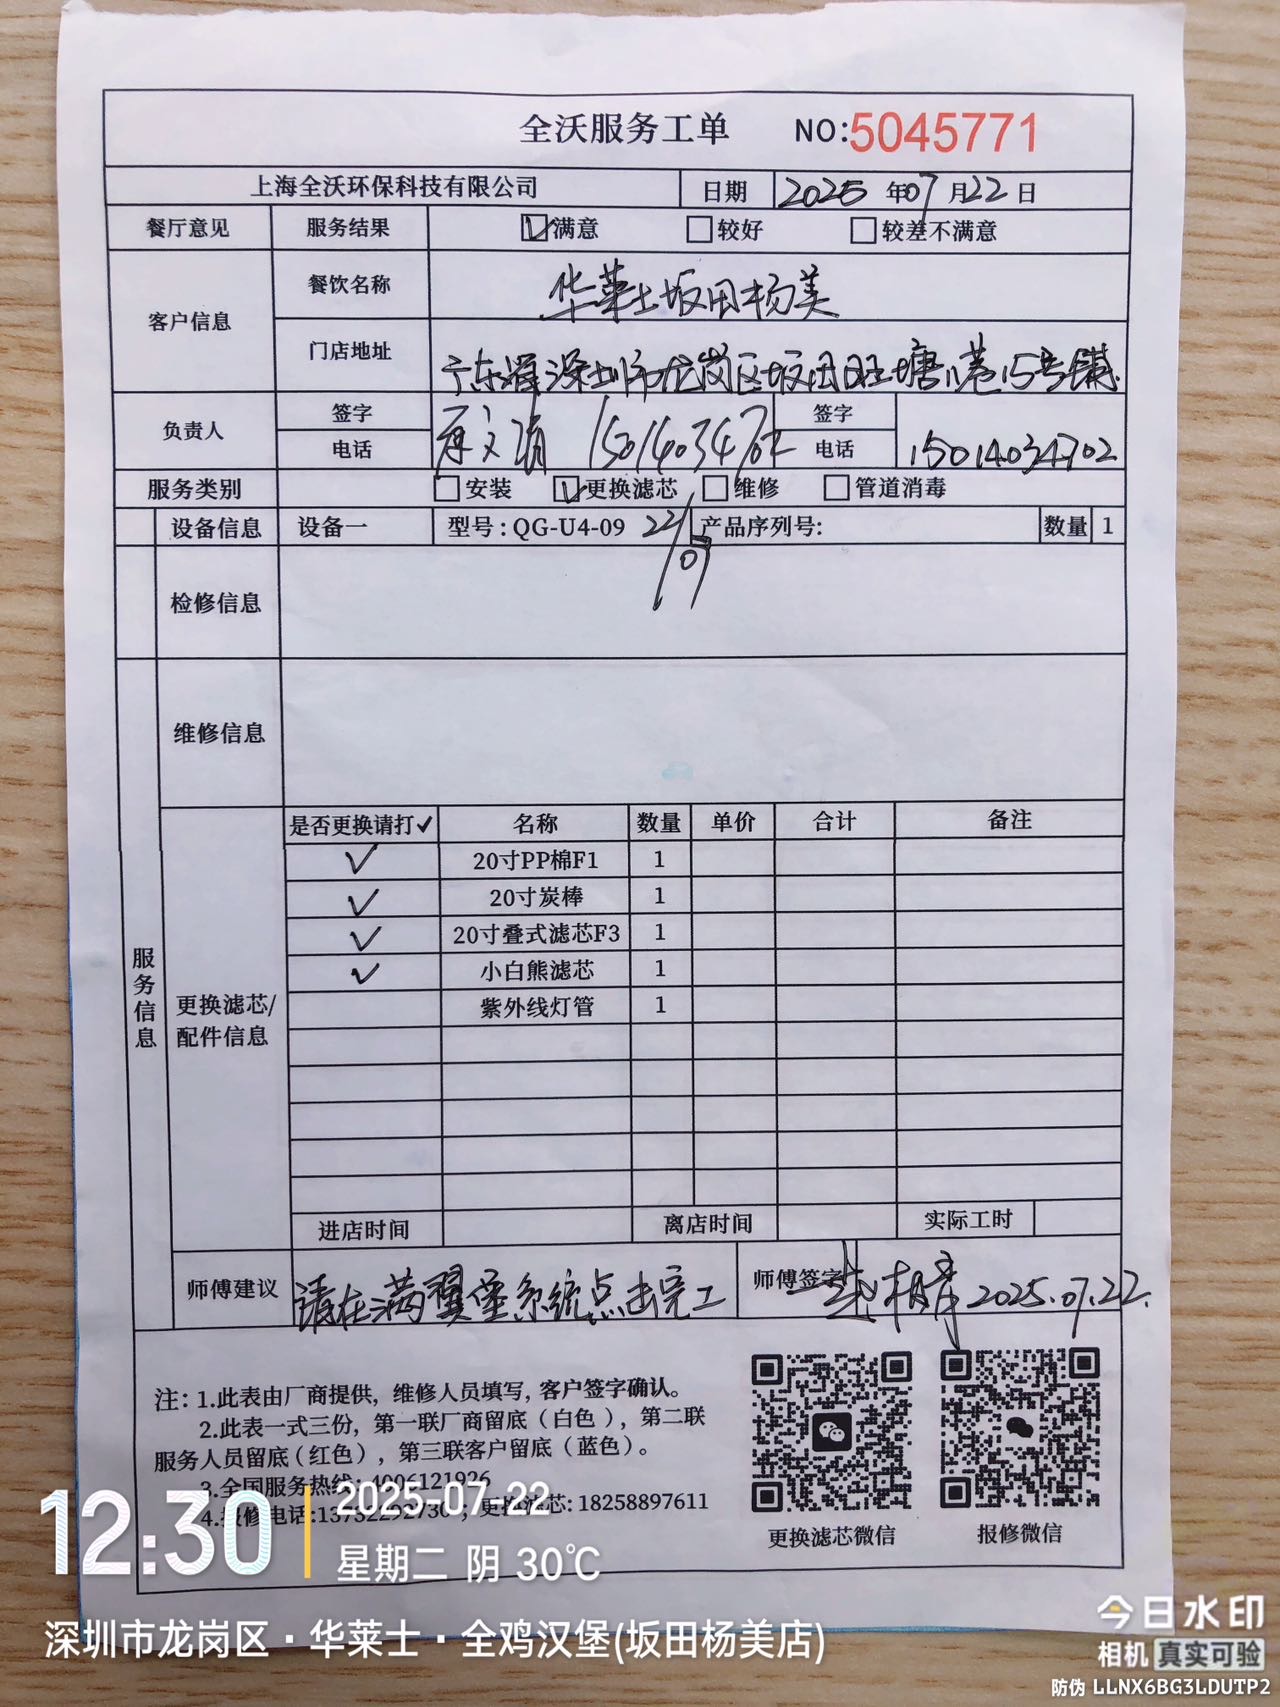 全沃服务工单 NO:5045771
上海全沃环保科技有限公司 日期 2025 年07月22日
餐厅意见 服务结果 满意 较好 较差不满意
客户信息 餐饮名称 华莱士坂田杨美
门店地址 广东省深圳市龙岗区坂田旺塘巷15号铺
负责人 签字 15014034702 签字
电话 电话 15014034702
服务类别 安装 更换滤芯 维修 管道消毒
设备信息 设备一 型号:QG-U4-09 22/07 产品序列号: 数量 1
检修信息
维修信息
服务信息
更换滤芯/配件信息
是否更换请打✓ 名称 数量 单价 合计 备注
✓ 20寸PP棉F1 1
✓ 20寸炭棒 1
✓ 20寸叠式滤芯F3 1
✓ 小白熊滤芯 1
紫外线灯管 1
进店时间 离店时间 实际工时
师傅建议 请在满翼堡系统点击完工 师傅签字 2025.07.22.
注: 1.此表由厂商提供, 维修人员填写, 客户签字确认。
2.此表一式三份, 第一联厂商留底 (白色), 第二联
服务人员留底 (红色), 第三联客户留底 (蓝色)。
3.全国服务热线: 4006121926
4.报修电话:13732292730 ; 更换滤芯: 18258897611
更换滤芯微信 报修微信
12:30 2025-07-22
星期二 阴 30℃
深圳市龙岗区·华莱士·全鸡汉堡(坂田杨美店)
今日水印
相机 真实可验
防伪 LLNX6BG3LDUTP2